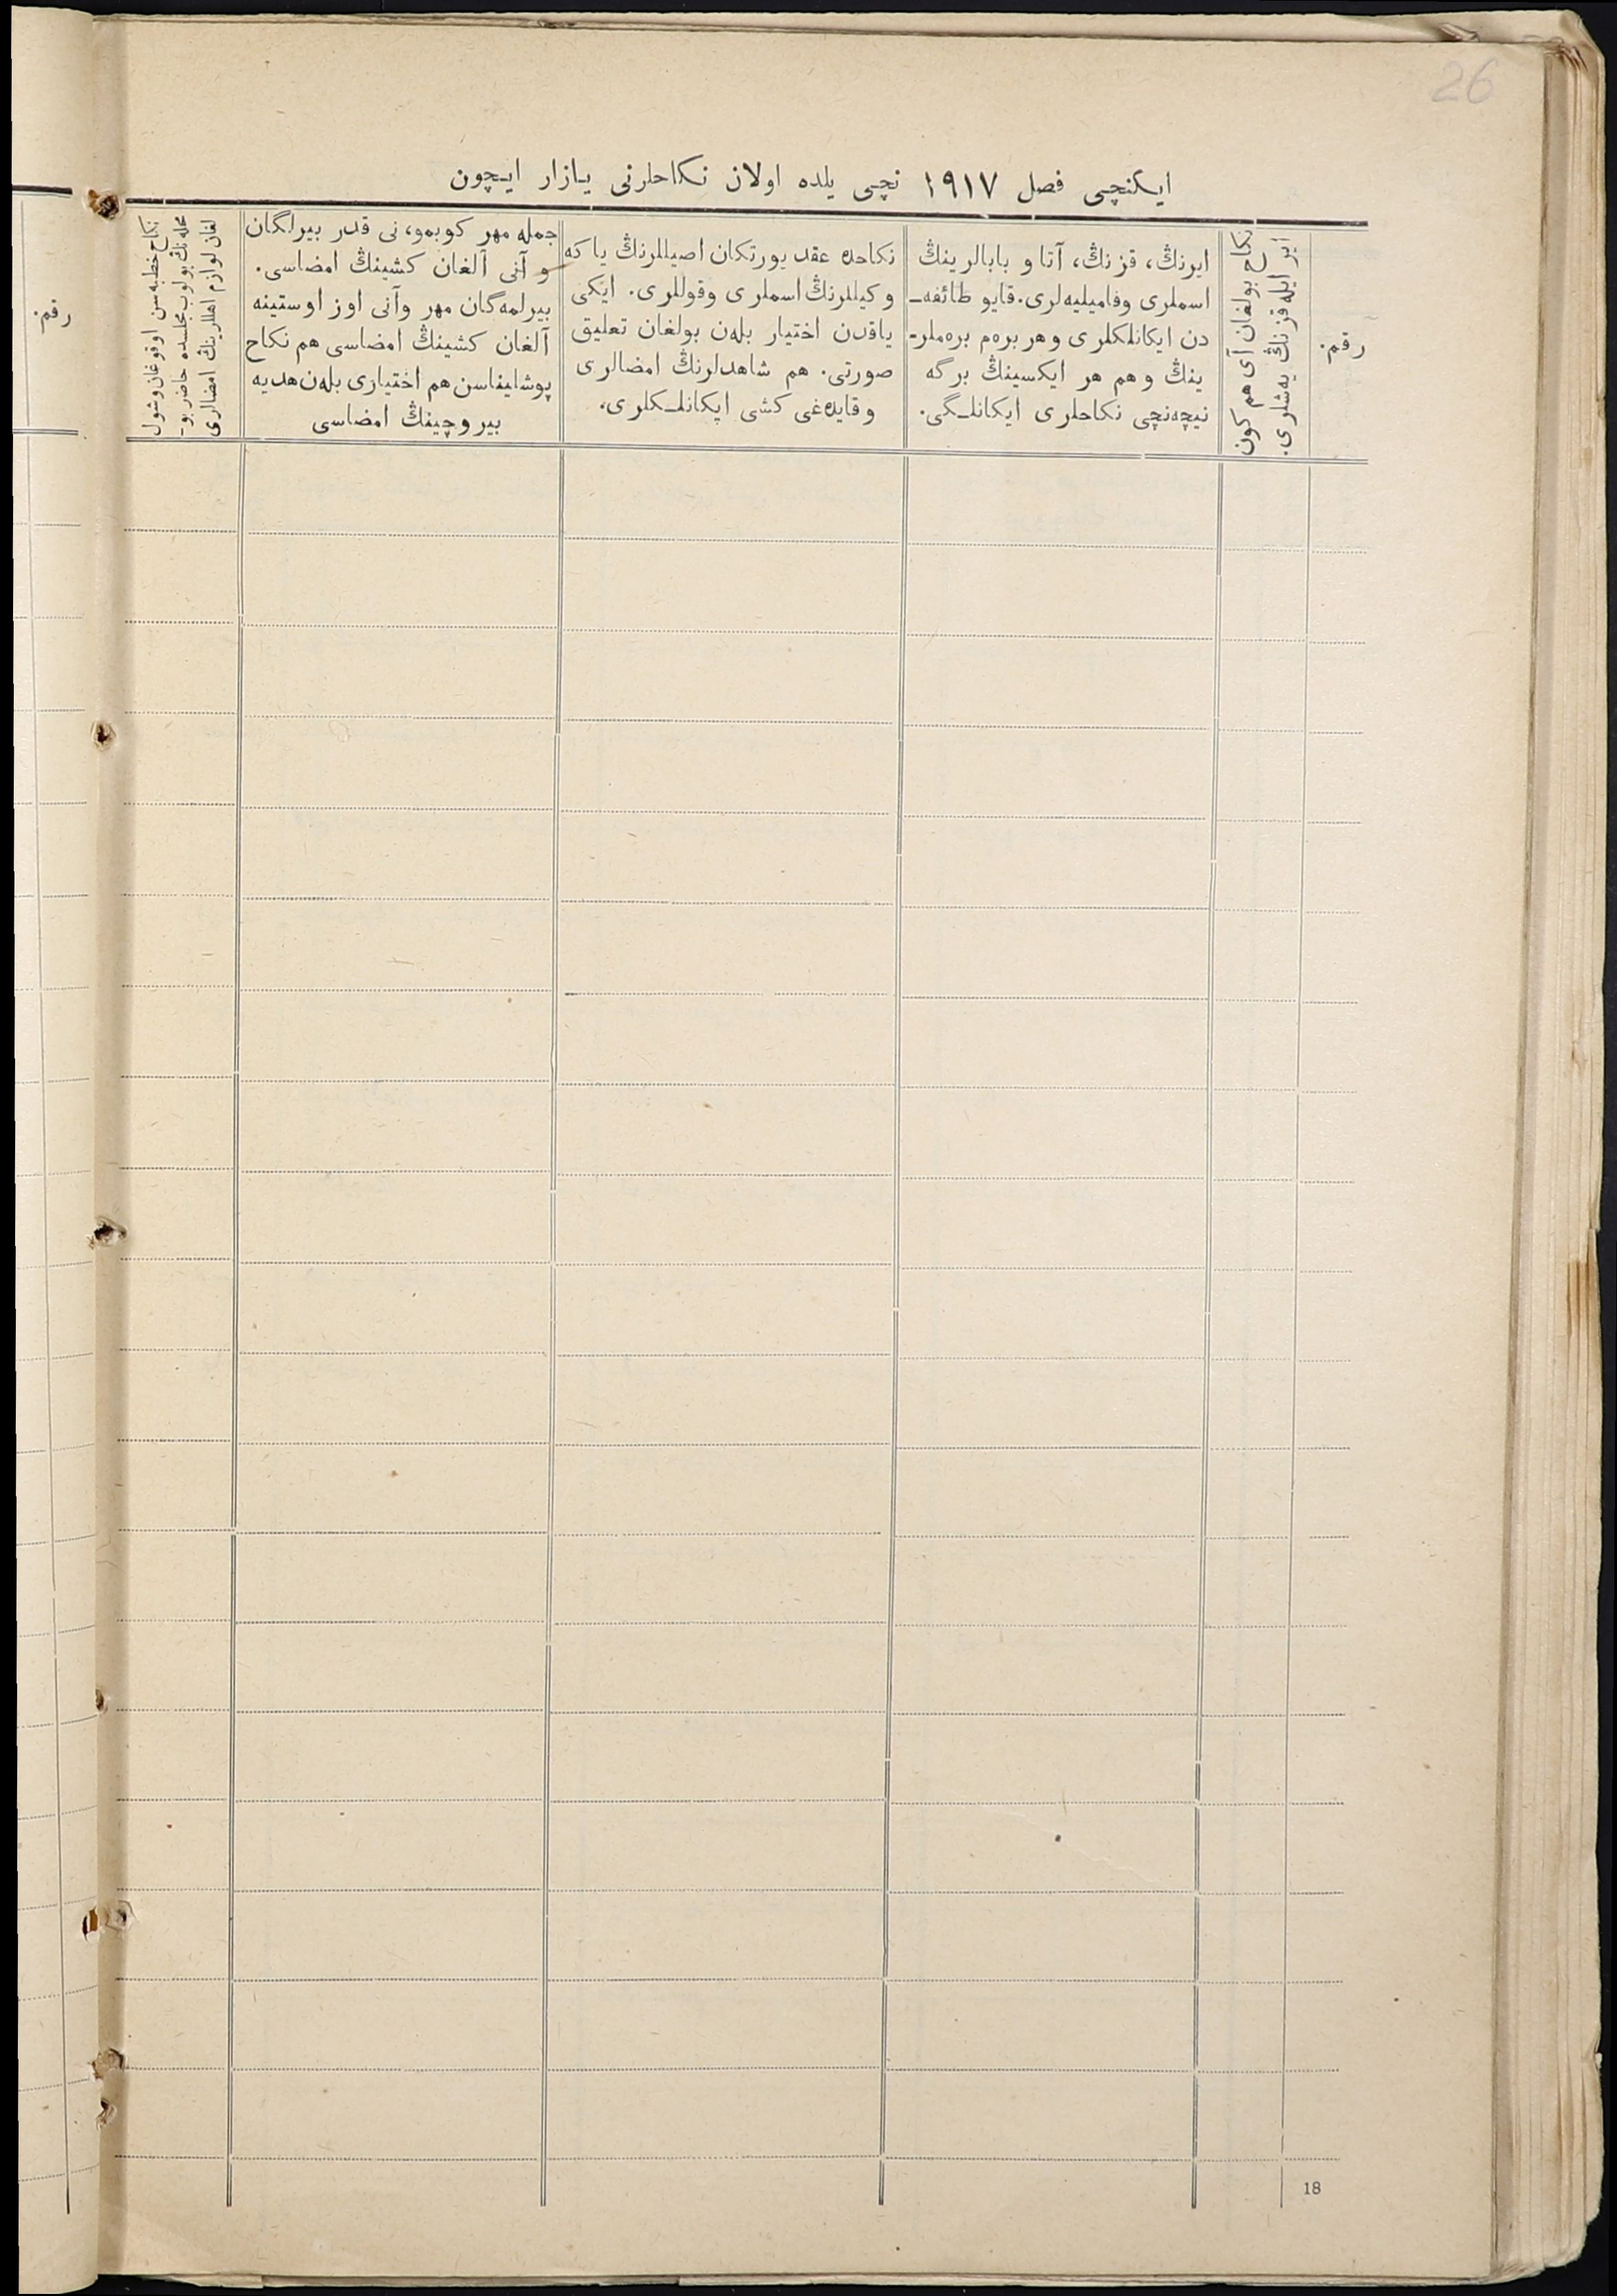 26
ایکنچی فصل ١٩١٧ نچی یلده اولان نکاحلرنی یازار ایچون
رقم.
نکاح بولغان آی هم کون
ایر ایله قزنڭ یه‌شلری.
ایرنڭ، قزنڭ، آتا و بابالرینڭ
اسملری وفامیلیه‌لری. قایو طائفه‌ـ
دن ایکانلکلری وهر بره‌م بره‌ملرـ
ینڭ وهم هر ایکسینڭ برگه
نیچه‌نچی نکاحلری ایکانلـگی.
نکاحده عقد یورتکان اصیللرنڭ یا که
وکیللرنڭ اسملری وقوللری. ایکی
یاقدن اختیار بله‌ن بولغان تعلیق
صورتی. هم شاهدلرنڭ امضالری
وقایده‌غی کشی ایکانلـکلری.
جمله مهر کوبمو، نی قدر بیرلگان
و آنی آلغان کشینڭ امضاسی.
بیرلمه‌گان مهر وآنی اوز اوستینه
آلغان کشینڭ امضاسی هم نکاح
پوشلیناسن هم اختیاری بله‌ن هدیه
بیروچینڭ امضاسی
نکاح خطبه‌سن اوقوغان وشول
محله‌نڭ بولوب مجلسده حاضر بوـ
لغان لوازم اهللرینڭ امضالری
رقم.
18